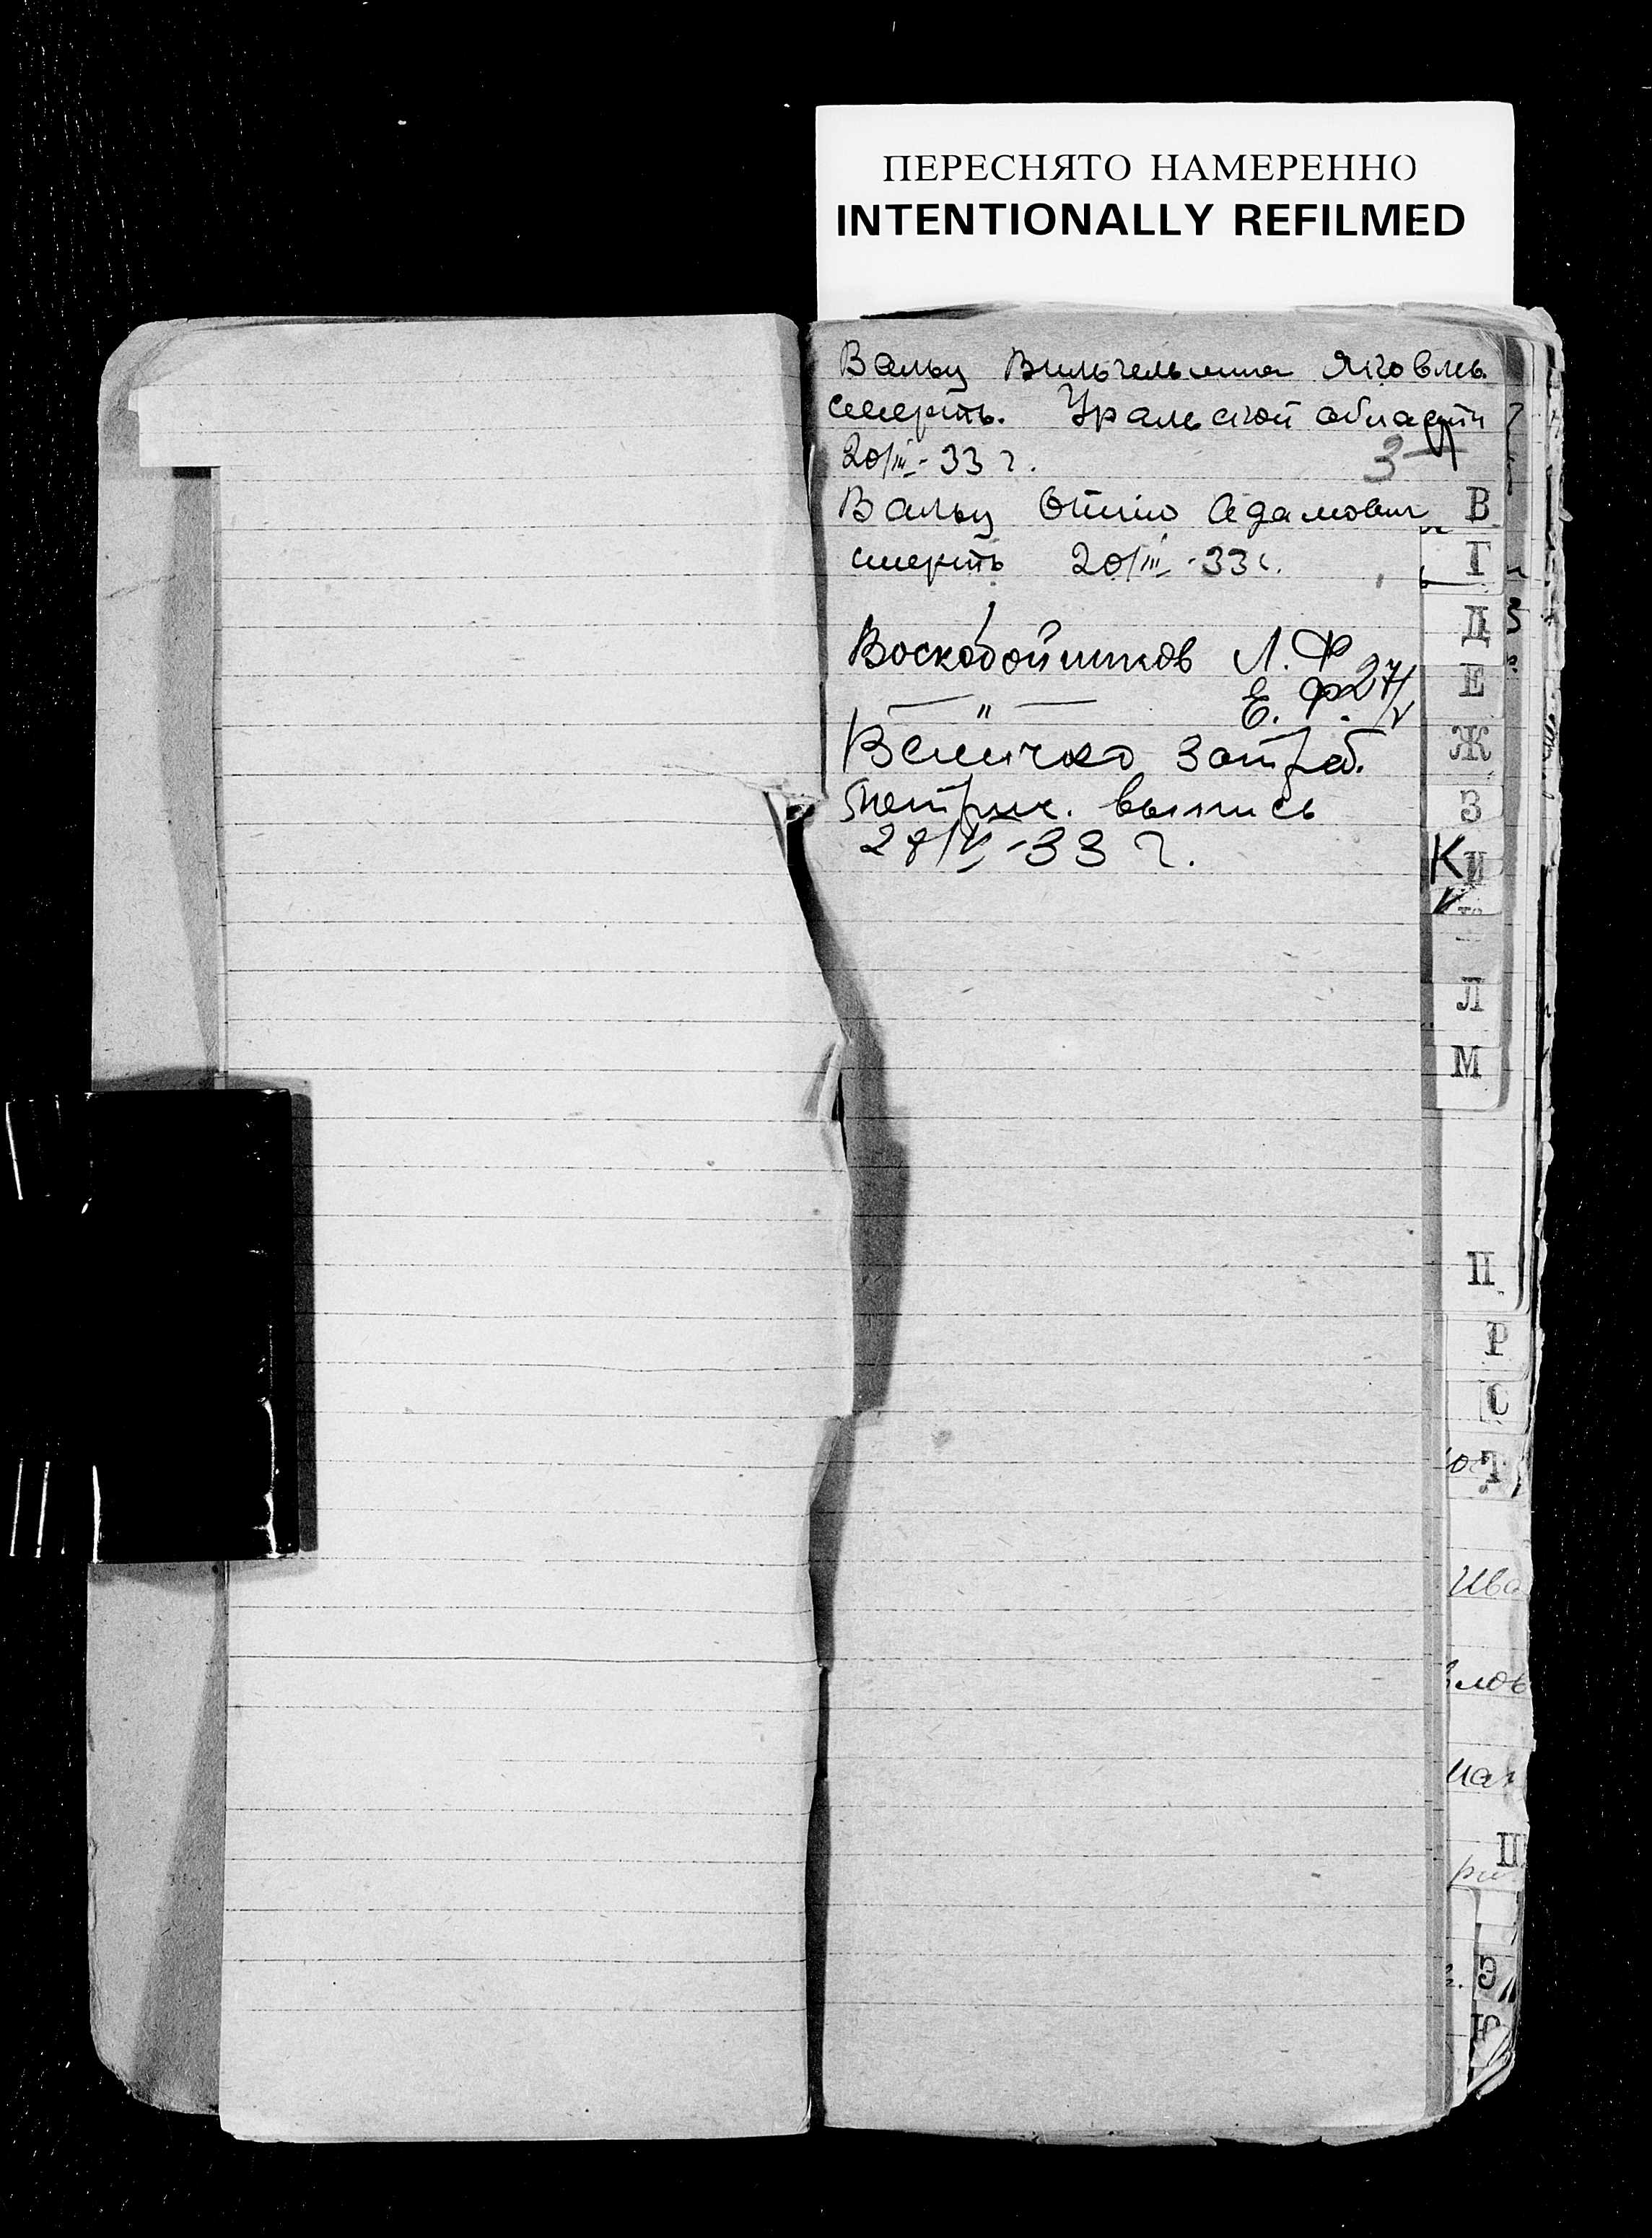 ПЕРЕСНЯТО НАМЕРЕННО
INTENTIONALLY REFILMED
Вальц Вильгельмина Яковлев.
смерть. Уральской области
20/III-33 г. 3
Вальц Отто Адамович
смерть 20/III-33 г.
Воскобойников Л. Ф.
— " — Е. Ф. 27/V
Величко затреб.
метрич. выпись
28/V-33 г.
В
Г
Д
Е
Ж
З
К И
Л
М
П
Р
С
Т
Ива
лов
Э
Ю